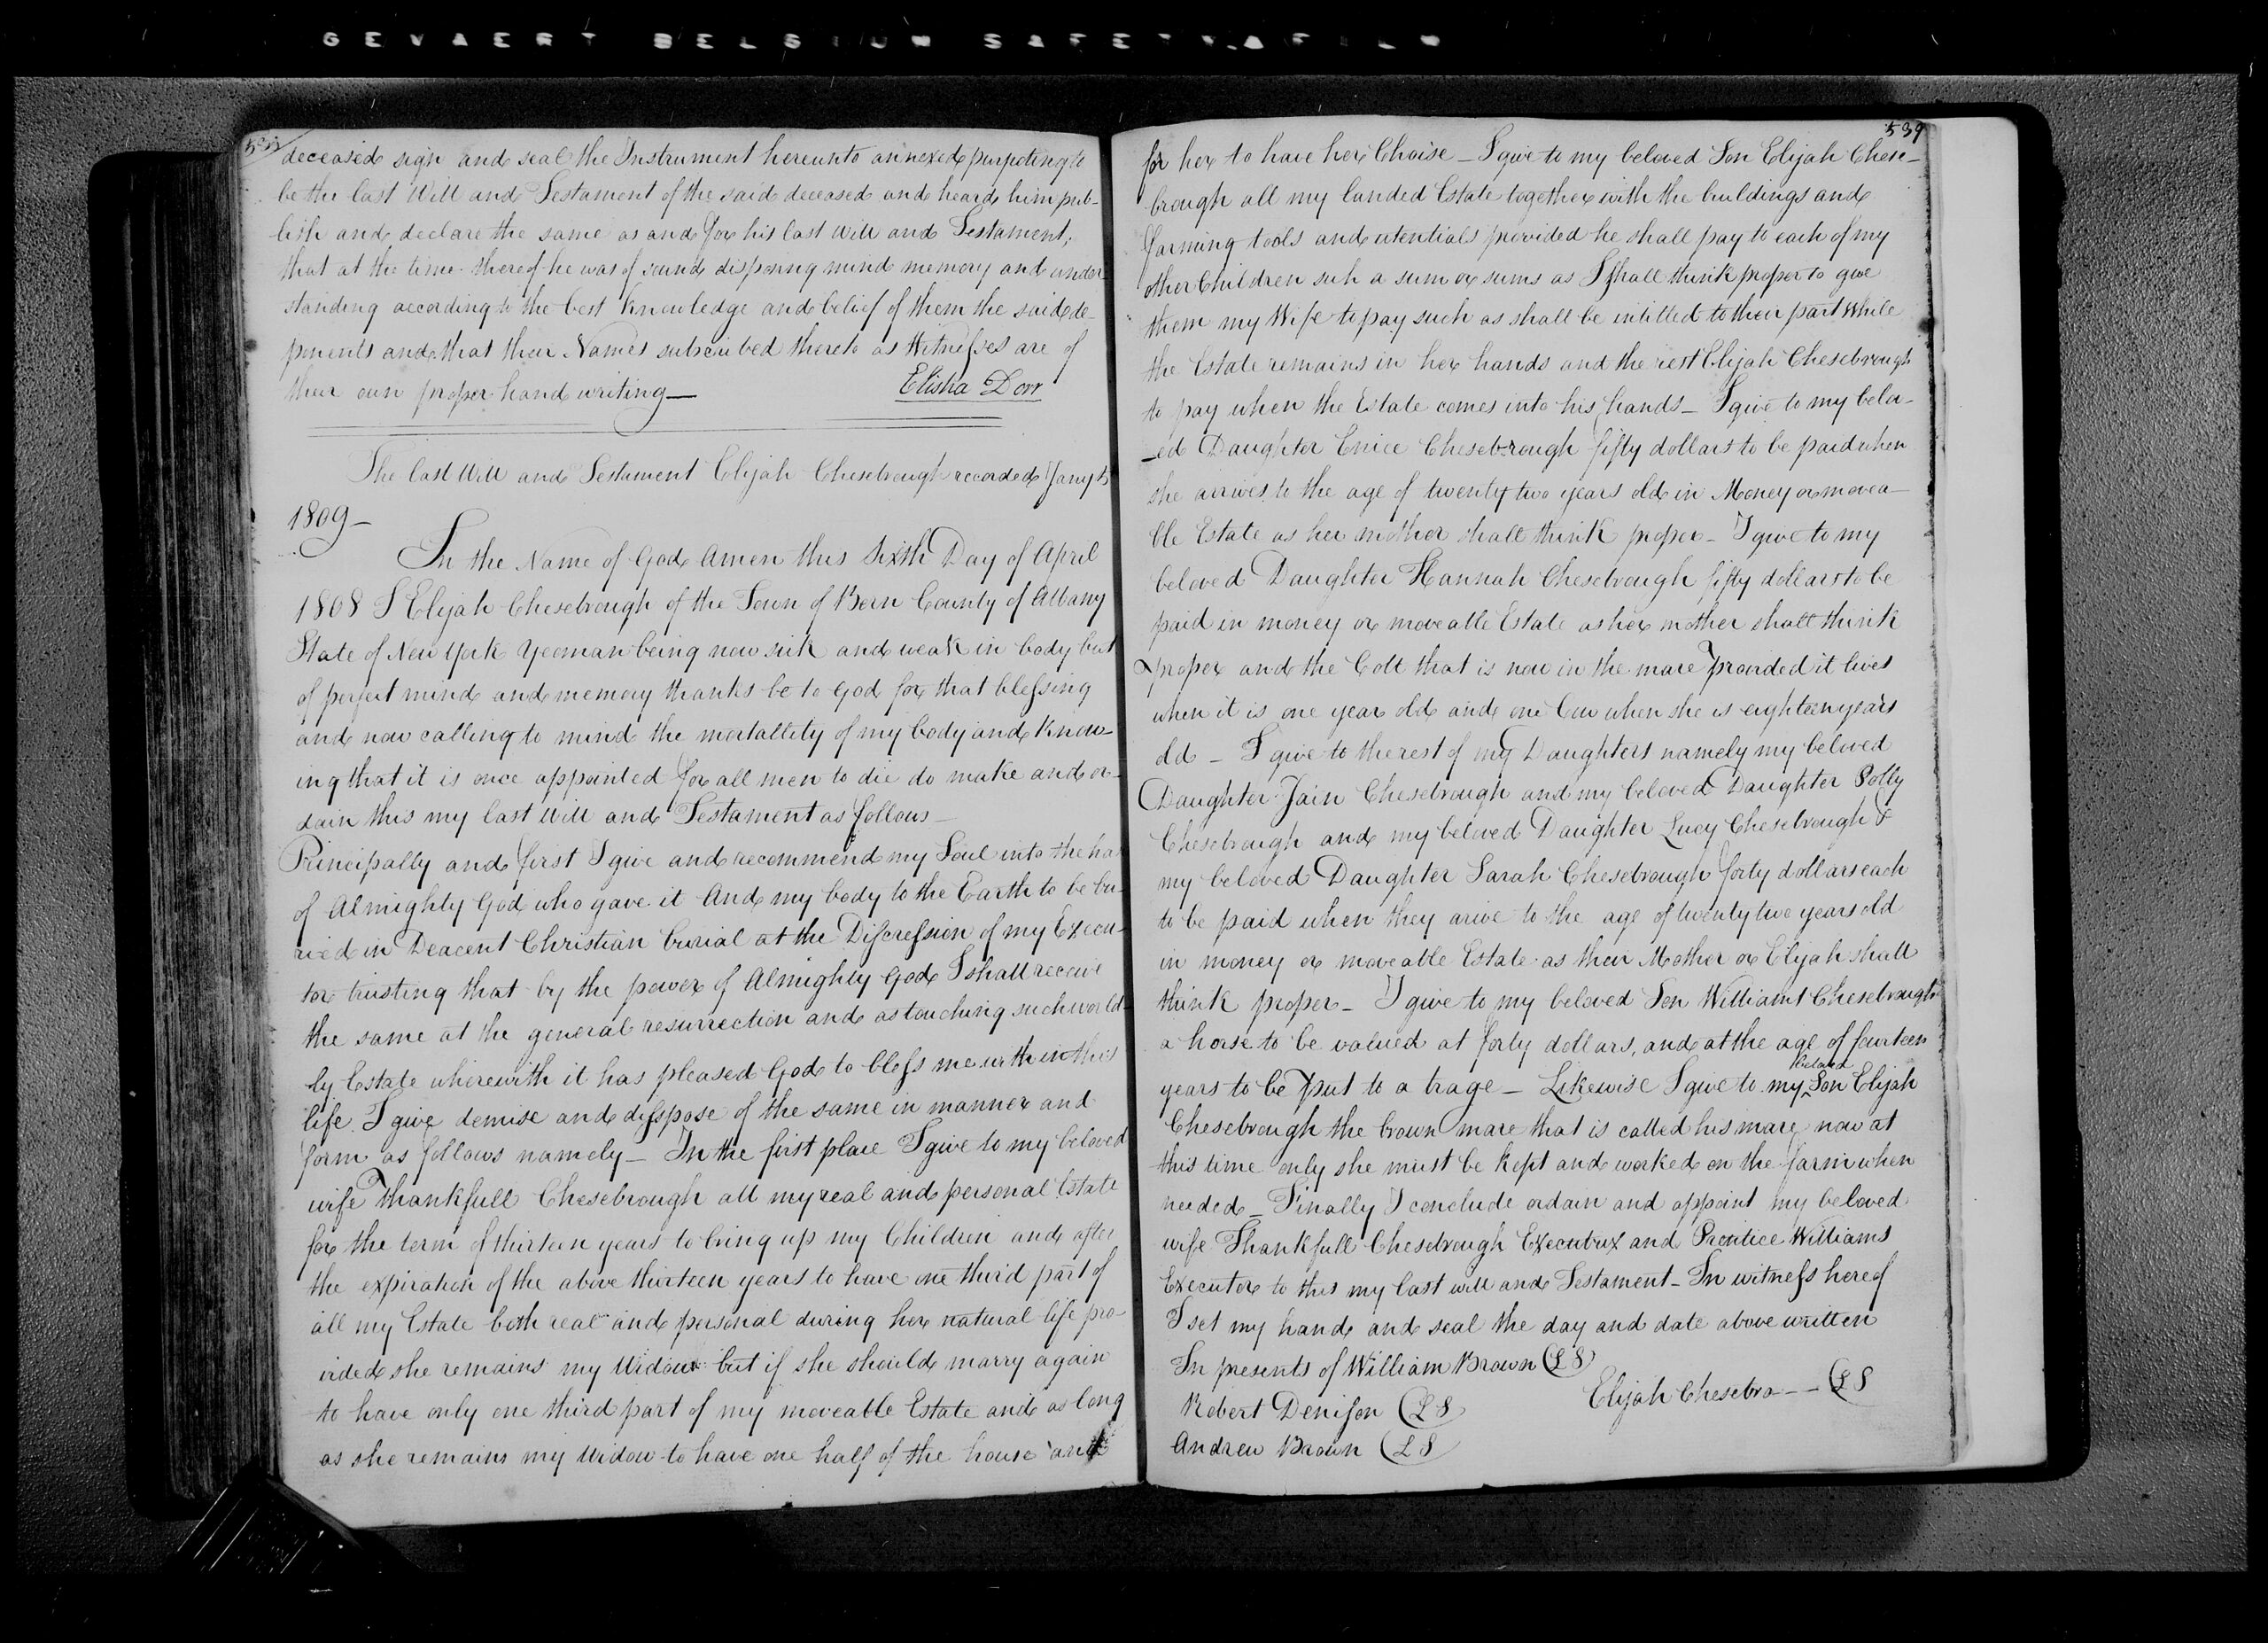 GEVAERT BELGIUM SAFETY FILM
deceased sign and seal the Instrument hereunto annexed purpoting to
be the last Will and Testament of the said deceased and heard him pub-
lish and declare the same as and for his last Will and Testament;
that at the time thereof he was of sound disposing mind memory and under
standing according to the best knowledge and belief of them the said de-
ponents and that their Names subscribed thereto as Witnesses are of
their own proper hand writing— Elisha Dorr
The last Will and Testament Elijah Chesebrough recorded Jany 5
1809—
In the Name of God Amen this Sixth Day of April
1808 I Elijah Chesebrough of the Town of Bern County of Albany
State of New York Yeoman being now sick and weak in body but
of perfect mind and memory thanks be to God for that blessing
and now calling to mind the mortallity of my body and know-
ing that it is once appointed for all men to die do make and or-
dain this my last Will and Testament as follows—
Principally and first I give and recommend my Soul into the ha
of Almighty God who gave it And my body to the Earth to be bu-
ried in Deacent Christian burial at the Discression of my Execu-
tor trusting that by the power of Almighty God I shall receive
the same at the general resurrection and as touching such world-
ly Estate wherewith it has pleased God to bless me with in this
life. I give demise and disspose of the same in manner and
form as follows namely— In the first place I give to my beloved
wife Thankfull Chesebrough all my real and personal Estate
for the term of thirteen years to bring up my Children and after
the expiration of the above thirteen years to have one third part of
all my Estate both real and personal during her natural life pro-
vided she remains my Widow but if she should marry again
to have only one third part of my moveable Estate and as long
as she remains my Widow to have one half of the house and
539
for her to have her Choise— I give to my beloved Son Elijah Chese-
brough all my landed Estate together with the buildings and
farming tools and utentials provided he shall pay to each of my
other Children such a sum or sums as I shall think proper to give
them my Wife to pay such as shall be intitled to their part While
the Estate remains in her hands and the rest Elijah Chesebrough
to pay when the Estate comes into his hands— I give to my belov-
-ed Daughter Enice Chesebrough fifty dollars to be paid when
she arrives to the age of twenty two years old in Money or movea-
ble Estate as her mother shall think proper— I give to my
beloved Daughter Hannah Chesebrough fifty dollars to be
paid in money or moveable Estate as her mother shall think
proper and the Colt that is now in the mare provided it lives
when it is one year old and one Cow when she is eighteen years
old— I give to the rest of my Daughters namely my beloved
Daughter Jain Chesebrough and my beloved Daughter Polly
Chesebrough and my beloved Daughter Lucy Chesebrough &
my beloved Daughter Sarah Chesebrough forty dollars each
to be paid when they arive to the age of twenty two years old
in money or moveable Estate as their Mother or Elijah shall
think proper— I give to my beloved Son William Chesebrough
a horse to be valued at forty dollars, and at the age of fourteen
years to be put to a trage— Likewise I give to my beloved Son Elijah
Chesebrough the brown mare that is called his mare now at
this time only she must be kept and worked on the farm when
needed— Finally I conclude ordain and appoint my beloved
wife Thankfull Chesebrough Executrix and Prentice Williams
Executor to this my last will and Testament— In witness hereof
I set my hand and seal the day and date above written
In presents of William Brown (LS)
Elijah Chesebro-- (LS
Robert Denison (LS)
Andrew Brown (LS)